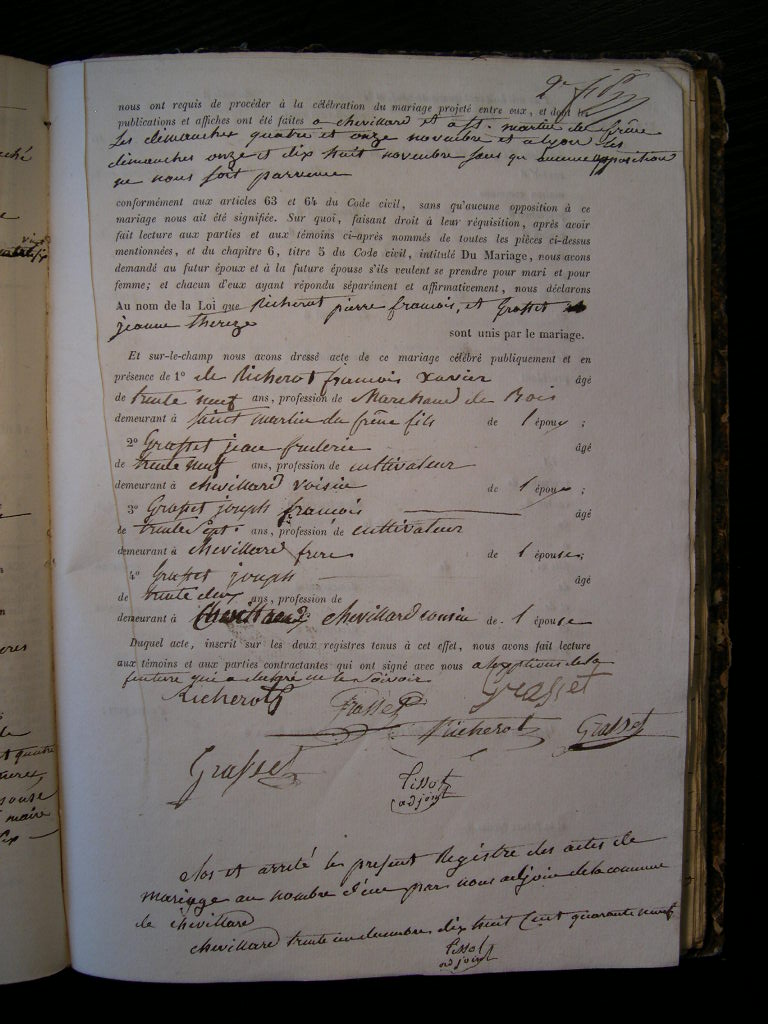 nous ont requis de procéder à la célébration du mariage projeté entre eux, et dont les
publications et affiches ont été faites a chevillard et a st. martin du frêne
Les dimanches quatre et onze novembre et a lyon les
dimanches onze et dix huit novembre sans qu aucune opposition
ne nous soit parvenue
conformément aux articles 63 et 64 du Code civil, sans qu'aucune opposition à ce
mariage nous ait été signifiée. Sur quoi, faisant droit à leur réquisition, après avoir
fait lecture aux parties et aux témoins ci-après nommés de toutes les pièces ci-dessus
mentionnées, et du chapitre 6, titre 5 du Code civil, intitulé Du Mariage, nous avons
demandé au futur époux et à la future épouse s'ils veulent se prendre pour mari et pour
femme; et chacun d'eux ayant répondu séparément et affirmativement, nous déclarons
Au nom de la Loi que Richerot pierre francois, et Grasset
jeanne thereze
sont unis par le mariage.
Et sur-le-champ nous avons dressé acte de ce mariage célébré publiquement et en
présence de 1° de Richerot francois Xavier âgé
de trente neuf ans, profession de Marchand de Bois
demeurant à saint martin du frêne fils de l époux ;
2° Grasset jean âgé
de trente neuf ans, profession de cultivateur
demeurant à chevillard voisin de l épouse ;
3° Grasset joseph francois âgé
de trente sept ans, profession de cultivateur
demeurant à chevillard frere de l épouse;
4° Grasset joseph âgé
de trente deux ans, profession de
demeurant à chevillard cousin de l épouse
Duquel acte, inscrit sur les deux registres tenus à cet effet, nous avons fait lecture
aux témoins et aux parties contractantes qui ont signé avec nous a lexptions de la
future qui a declaré ne le savoir
Richerot Grasset Grasset
Richerot Grasset
Grasset
Pissot
adjoint
Clos et arrêté le present Registre des actes de
mariage au nombre d'un par nous adjoin de la commune
de chevillard
chevillard trente un decembre dix huit Cent quarante neuf
Pissot
adjoint